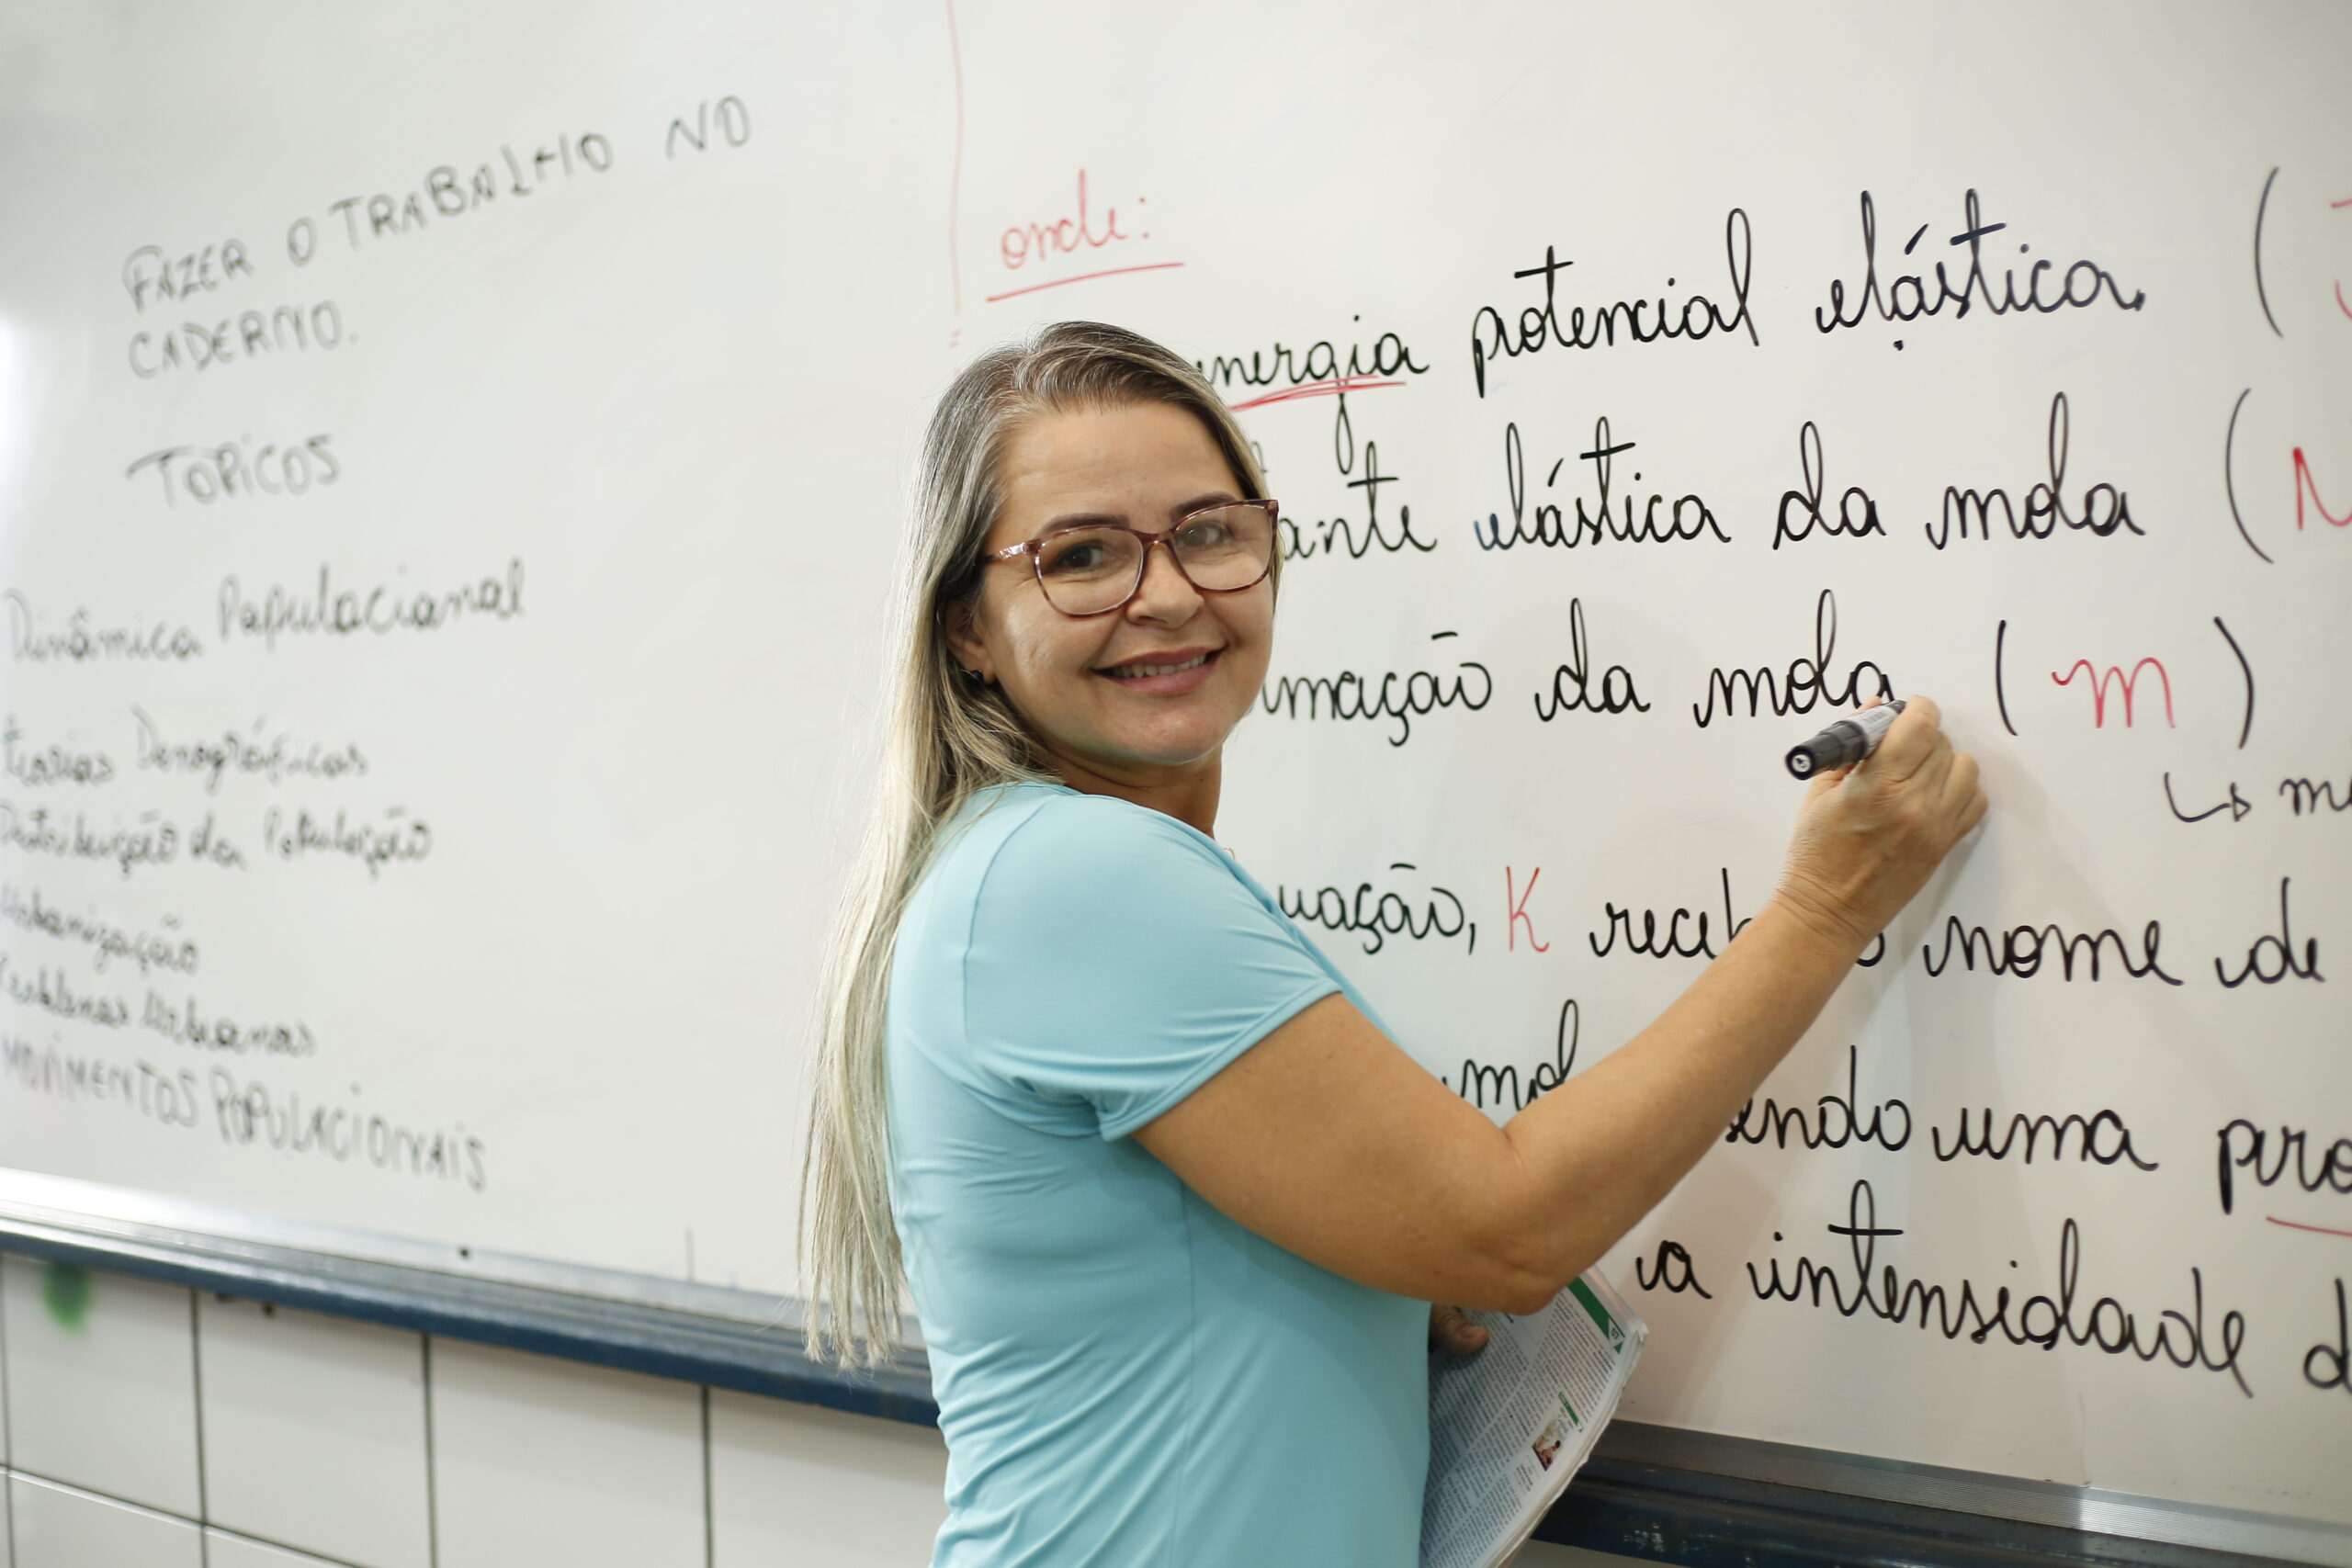 FAZER O TRABALHO NO
CADERNO.
TOPICOS
Dinâmica Populacional
Teorias Demográficas
Distribuição da População
Urbanização
Problemas Urbanos
MOVIMENTOS POPULACIONAIS
onde:
energia potencial elástica. (
elástica da mola (
da mola (m)
K nome de
uma
a intensidade